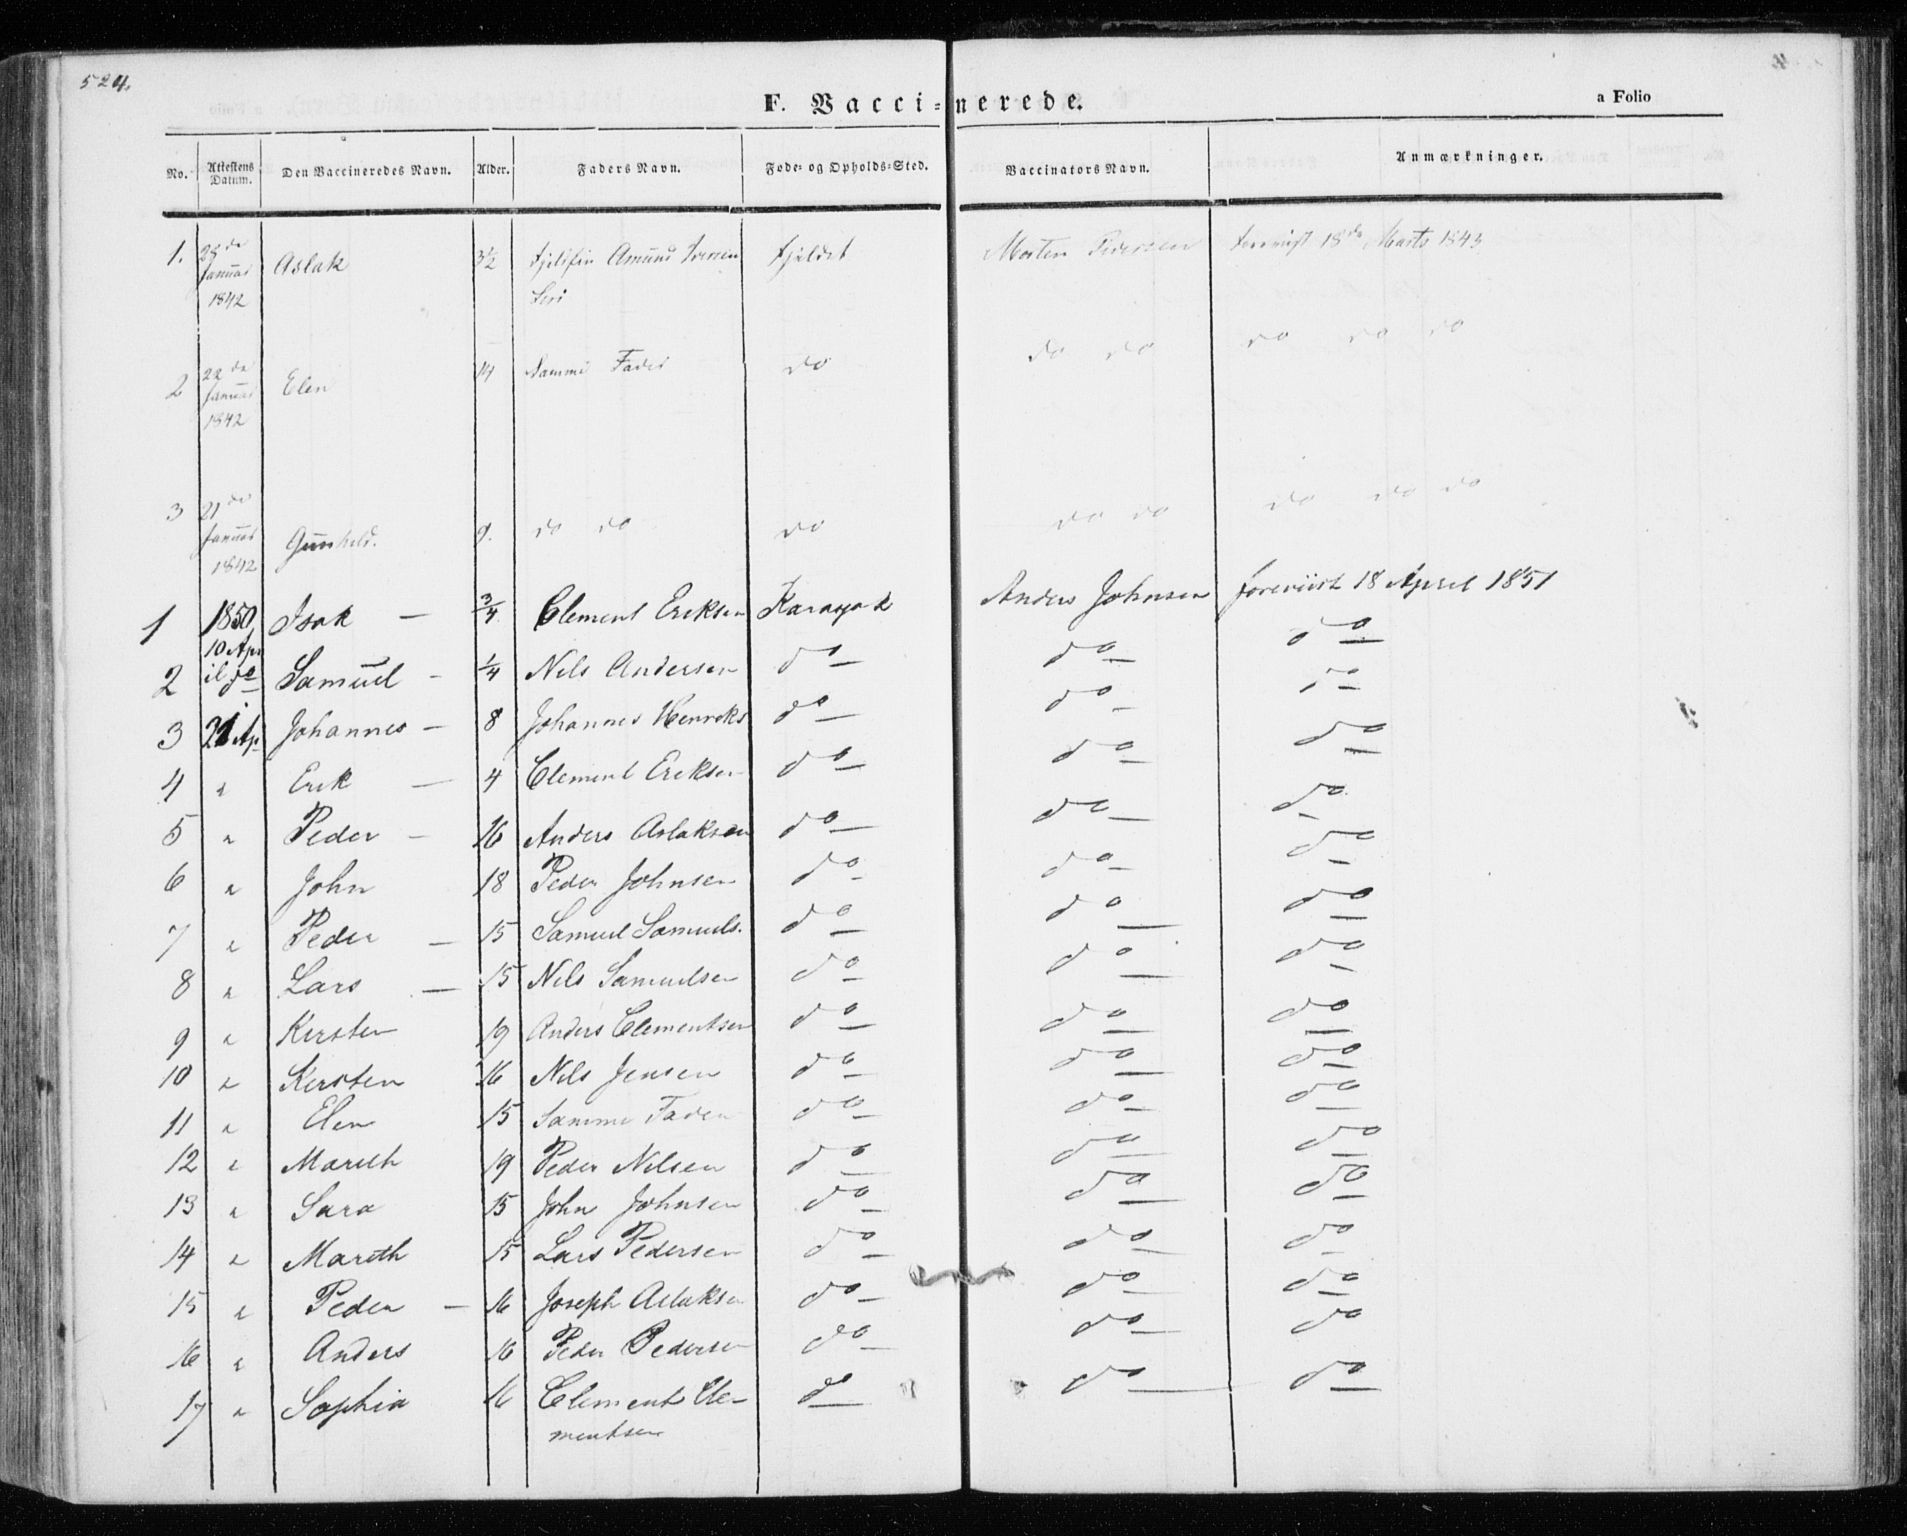 524.
F. Vacci=nerede.
a Folio
No. Attestens Datum. Den Vaccineredes Navn. Alder. Faders Navn. Føde= og Opholds=Sted. Vaccinators Navn. Anmærkninger.
1. 25 de Januar 1842 Aslak 3½ Fjeldfin Amund Fjeldet Morten Pedersen foreviist 18 de Marts 1843
2 22 de Januar 1842 Elen 14 Samme Fader do do do do do do
3 21 de Januar 1842 Gunhild. 9. do do do do do do do do
1 1850 10 April Isak — 3/4 Clement Eriksen Karasjok Anders Johnsen foreviist 18 April 1851
2 do Samuel — 1/4 Nils Andersen do do do
3 21 Ap. Johannes — 8 Johannes Henriks do do do
4 " Erik — 4 Clement Eriksen do do do
5 " Peder — 16 Anders Aslaksen do do do
6 " John 18 Peder Johnsen do do do
7 " Peder — 15 Samuel Samuels. do do do
8 " Lars — 15 Nils Samuelsen do do do
9 " Kirsten 19 Anders Clementsen do do do
10 " Kirsten 16 Nils Jensen do do do
11 " Elen 15 Samme Fader do do do
12 " Marith 19 Peder Nilsen do do do
13 " Sara 15 John Johnsen do do do
14 " Marith 15 Lars Pedersen do do do
15 " Peder — 16 Joseph Aslaksen do do do
16 " Anders 16 Peder Pedersen do do do
17 " Sophia 16 Clement Cle-
mentsen do do do